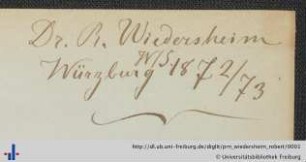 Dr. R. Wiedersheim
W/S.
Würzburg 1872/73
http://dl.ub.uni-freiburg.de/diglit/prn_wiedersheim_robert/0001
© Universitätsbibliothek Freiburg